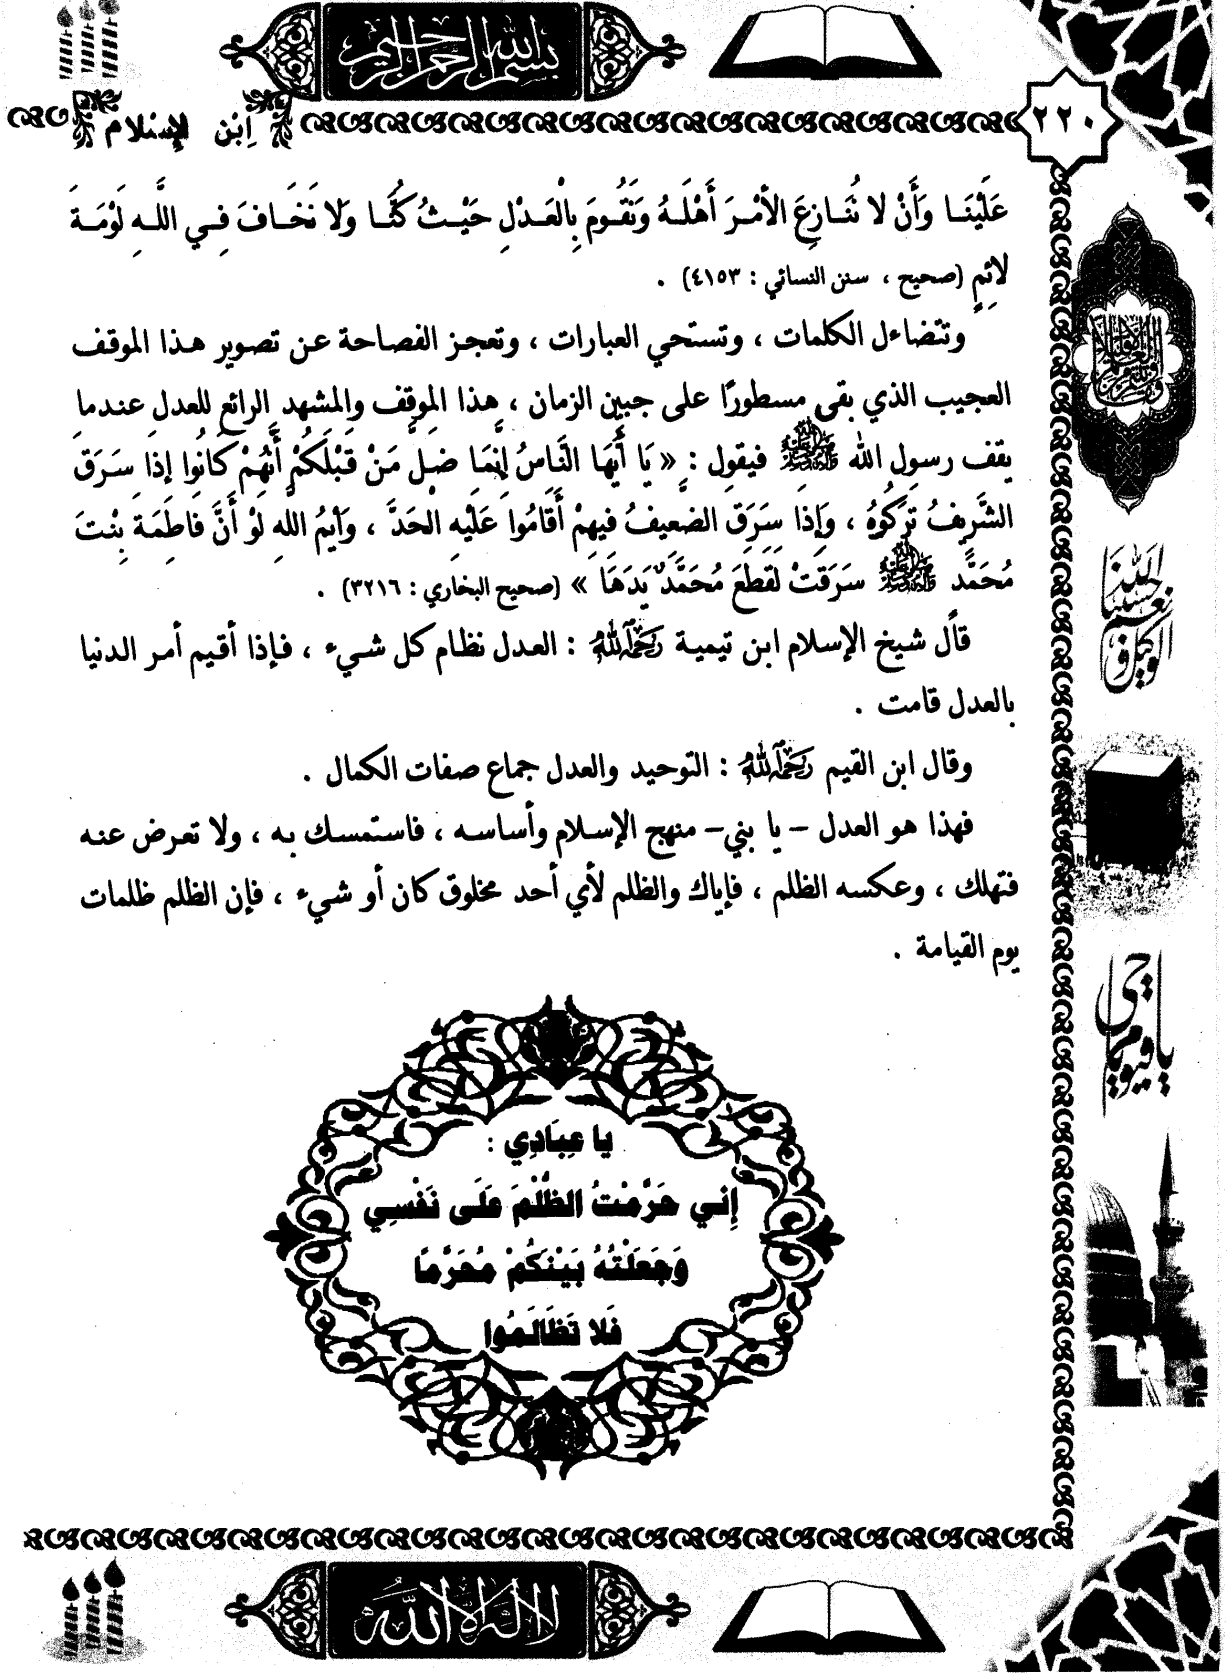 بسم الله الرحمن الرحيم
٢٢٠
ابن الإسلام
عَلَيْنَا وَأَنْ لا نُنَازِعَ الأَمْرَ أَهْلَهُ وَنَقُومَ بِالْعَدْلِ حَيْثُ كُنَّا وَلا نَخَافَ فِي اللَّهِ لَوْمَةَ
لائِمٍ (صحيح ، سنن النسائي : ٤١٥٣) .
وتتضاءل الكلمات ، وتستحي العبارات ، وتعجز الفصاحة عن تصوير هذا الموقف
العجيب الذي بقى مسطورًا على جبين الزمان ، هذا الموقف والمشهد الرائع للعدل عندما
يقف رسول الله ﷺ فيقول : « يَا أَيُّهَا النَّاسُ إِنَّمَا ضَلَّ مَنْ قَبْلَكُمْ أَنَّهُمْ كَانُوا إِذَا سَرَقَ
الشَّرِيفُ تَرَكُوهُ ، وَإِذَا سَرَقَ الضَّعِيفُ فِيهِمْ أَقَامُوا عَلَيْهِ الحَدَّ ، وَايْمُ اللهِ لَوْ أَنَّ فَاطِمَةَ بِنْتَ
مُحَمَّد ﷺ سَرَقَتْ لَقَطَعَ مُحَمَّدٌ يَدَهَا » (صحيح البخاري : ٣٢١٦) .
قال شيخ الإسلام ابن تيمية رَحِمَهُ اللهُ : العدل نظام كل شيء ، فإذا أقيم أمر الدنيا
بالعدل قامت .
وقال ابن القيم رَحِمَهُ اللهُ : التوحيد والعدل جماع صفات الكمال .
فهذا هو العدل – يا بني – منهج الإسلام وأساسه ، فاستمسك به ، ولا تعرض عنه
فتهلك ، وعكسه الظلم ، فإياك والظلم لأي أحد مخلوق كان أو شيء ، فإن الظلم ظلمات
يوم القيامة .
يا عِبَادِي :
إِني حَرَّمْتُ الظُّلْمَ عَلَى نَفْسِي
وَجَعَلْتُهُ بَيْنَكُمْ مُحَرَّمًا
فَلا تَظَالَمُوا
حسبنا الله ونعم الوكيل
يا حي يا قيوم
لا إله إلا الله